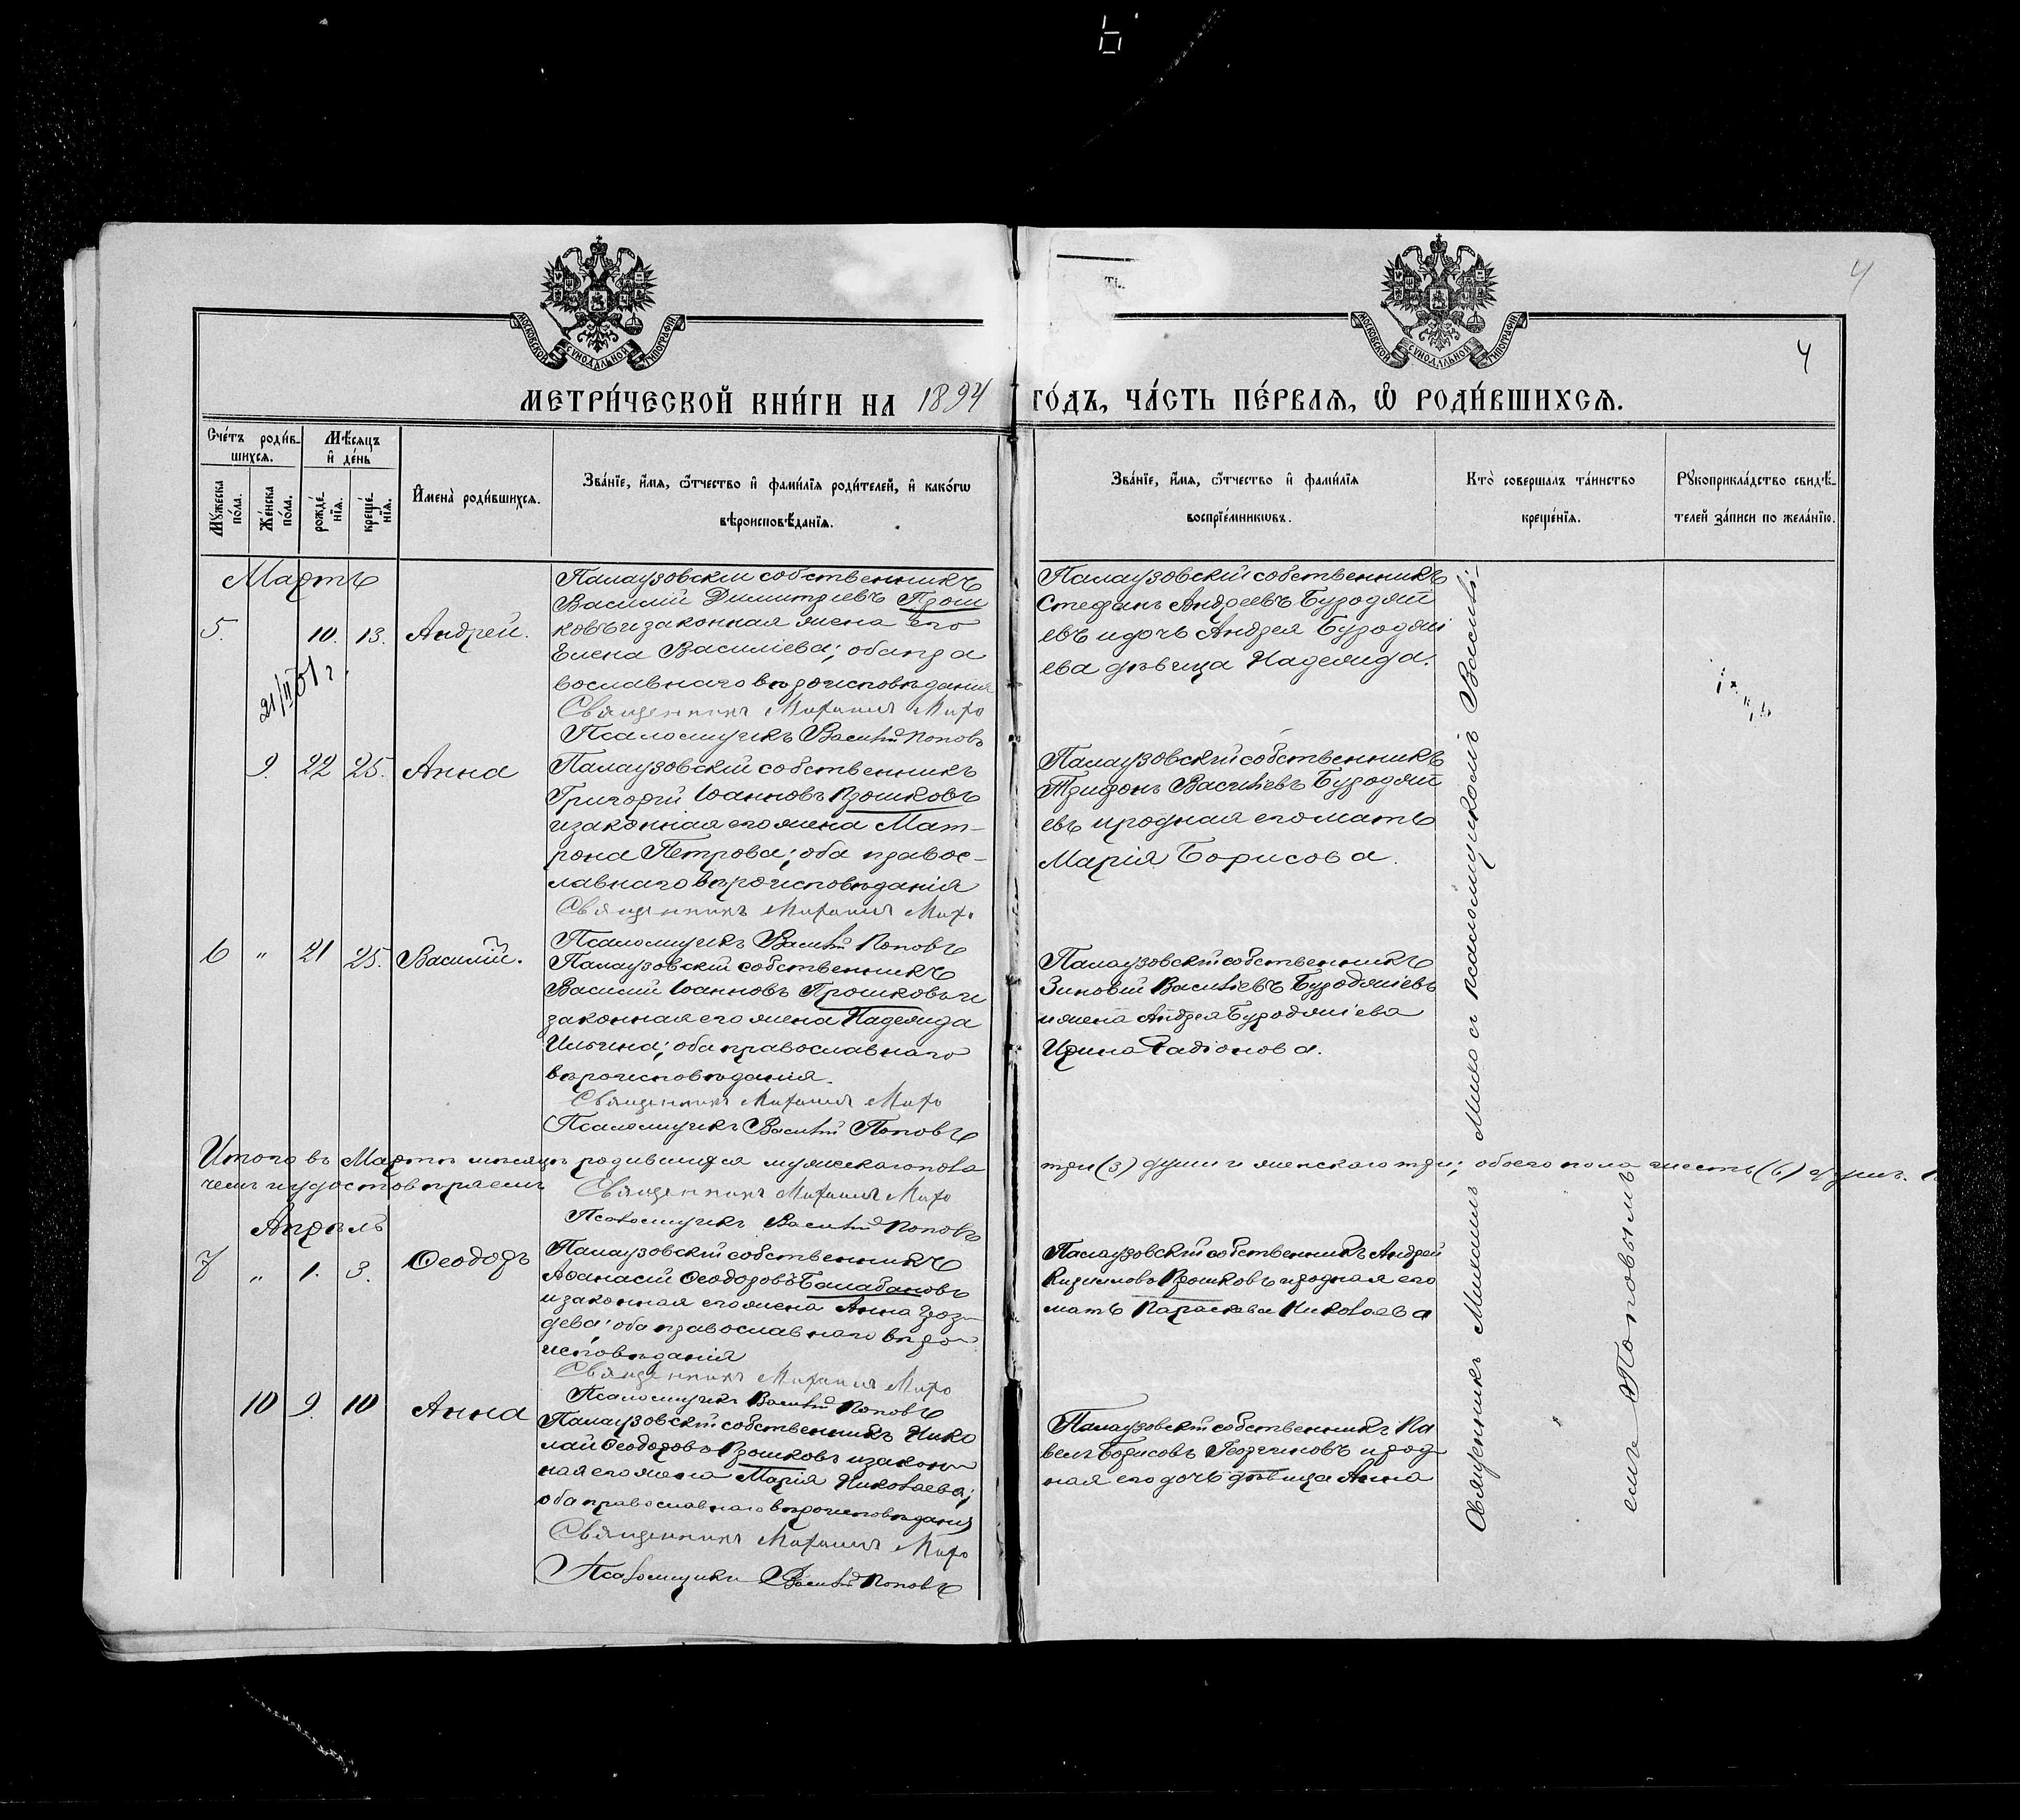 4
МОСКОВСКОЙ СѴНОДАЛЬНОЙ ТИПОГРАФІИ
МОСКОВСКОЙ СѴНОДАЛЬНОЙ ТИПОГРАФІИ
4
МЕТРИ́ЧЕСКОЙ КНИ́ГИ НА 1894 ГО́ДЪ, ЧА́СТЬ ПЕ́РВАЯ, Ѡ РОДИ́ВШИХСЯ.
Сче́тъ роди́в-
шихся.
Мѣ́сяцъ
и де́нь
Мꙋ́жеска по́ла.
Же́нска по́ла.
рожде́нїя.
креще́нїя.
Имена̀ роди́вшихся.
Зва́нїе, и́мя, ѻ́тчество и фами́лїя роди́телей, и како́гѡ
вѣроисповѣ́данїя.
Зва́нїе, и́мя, ѻ́тчество и фами́лїя
воспрїе́мникѡвъ.
Кто̀ соверша́лъ та́инство
креще́нїя.
Рꙋкоприкла́дство свидѣ́-
телей за́писи по жела́нїю.
Мартъ
5. 10. 13. Андрей.
21/II 01 г.
Палаузовскій собственникъ
Василій Димитріевъ Прош
ковъ и законная жена его
Елена Василіева; оба пра
вославнаго вѣроисповѣданія
Священникъ Михаилъ Михо
Псаломщикъ Василій Поповъ
Палаузовскій собственникъ
Стефанъ Андреевъ Бурджі
евъ и дочь Андрея Бурджі
ева дѣвица Надежда.
9. 22 25. Анна
Палаузовскій собственникъ
Григорій Іоанновъ Прошковъ
и законная его жена Мат-
рона Петрова; оба правос-
лавнаго вѣроисповѣданія
Священникъ Михаилъ Михо
Псаломщикъ Василій Поповъ
Палаузовскій собственникъ
Трифонъ Василіевъ
евъ и родная его мать
Марія Борисова.
6 " 21 25. Василій.
Палаузовскій собственникъ
Василій Іоанновъ Прошковъ и
законная его жена Надежда
Ильина; оба православнаго
вѣроисповѣданія.
Священникъ Михаилъ Михо
Псаломщикъ Василій Поповъ
Палаузовскій собственникъ
Зиновій Василіевъ
и жена Андрея
Ирина Радіонова.
Итого въ Мартѣ мѣсяцѣ родившихся мужескаго пола три (3) души и женскаго три; обоего пола шесть (6) душъ.
чемъ и удостовѣряемъ
Священникъ Михаилъ Михо
Псаломщикъ Василій Поповъ
Апрѣль
7 " 1. 3. Ѳеодоръ
Палаузовскій собственникъ
Аѳанасій Ѳеодоровъ Балабановъ
и законная его жена Анна
оба православнаго вѣро
исповѣданія
Священникъ Михаилъ Михо
Псаломщикъ Василій Поповъ
Палаузовскій собственникъ Андрей
Кирилловъ Прошковъ и родная его
мать Параскева Николаева
10 9. 10 Анна
Палаузовскій собственникъ Нико
лай Ѳеодоровъ Прошковъ и закон
ная его жена Марія Николаева;
оба православнаго вѣроисповѣданія
Священникъ Михаилъ Михо
Псаломщикъ Василій Поповъ
Палаузовскій собственникъ Па
велъ Борисовъ и род
ная его дочь дѣвица Анна
Священникъ Михаилъ Михо съ псаломщикомъ Василі-
емъ Поповымъ